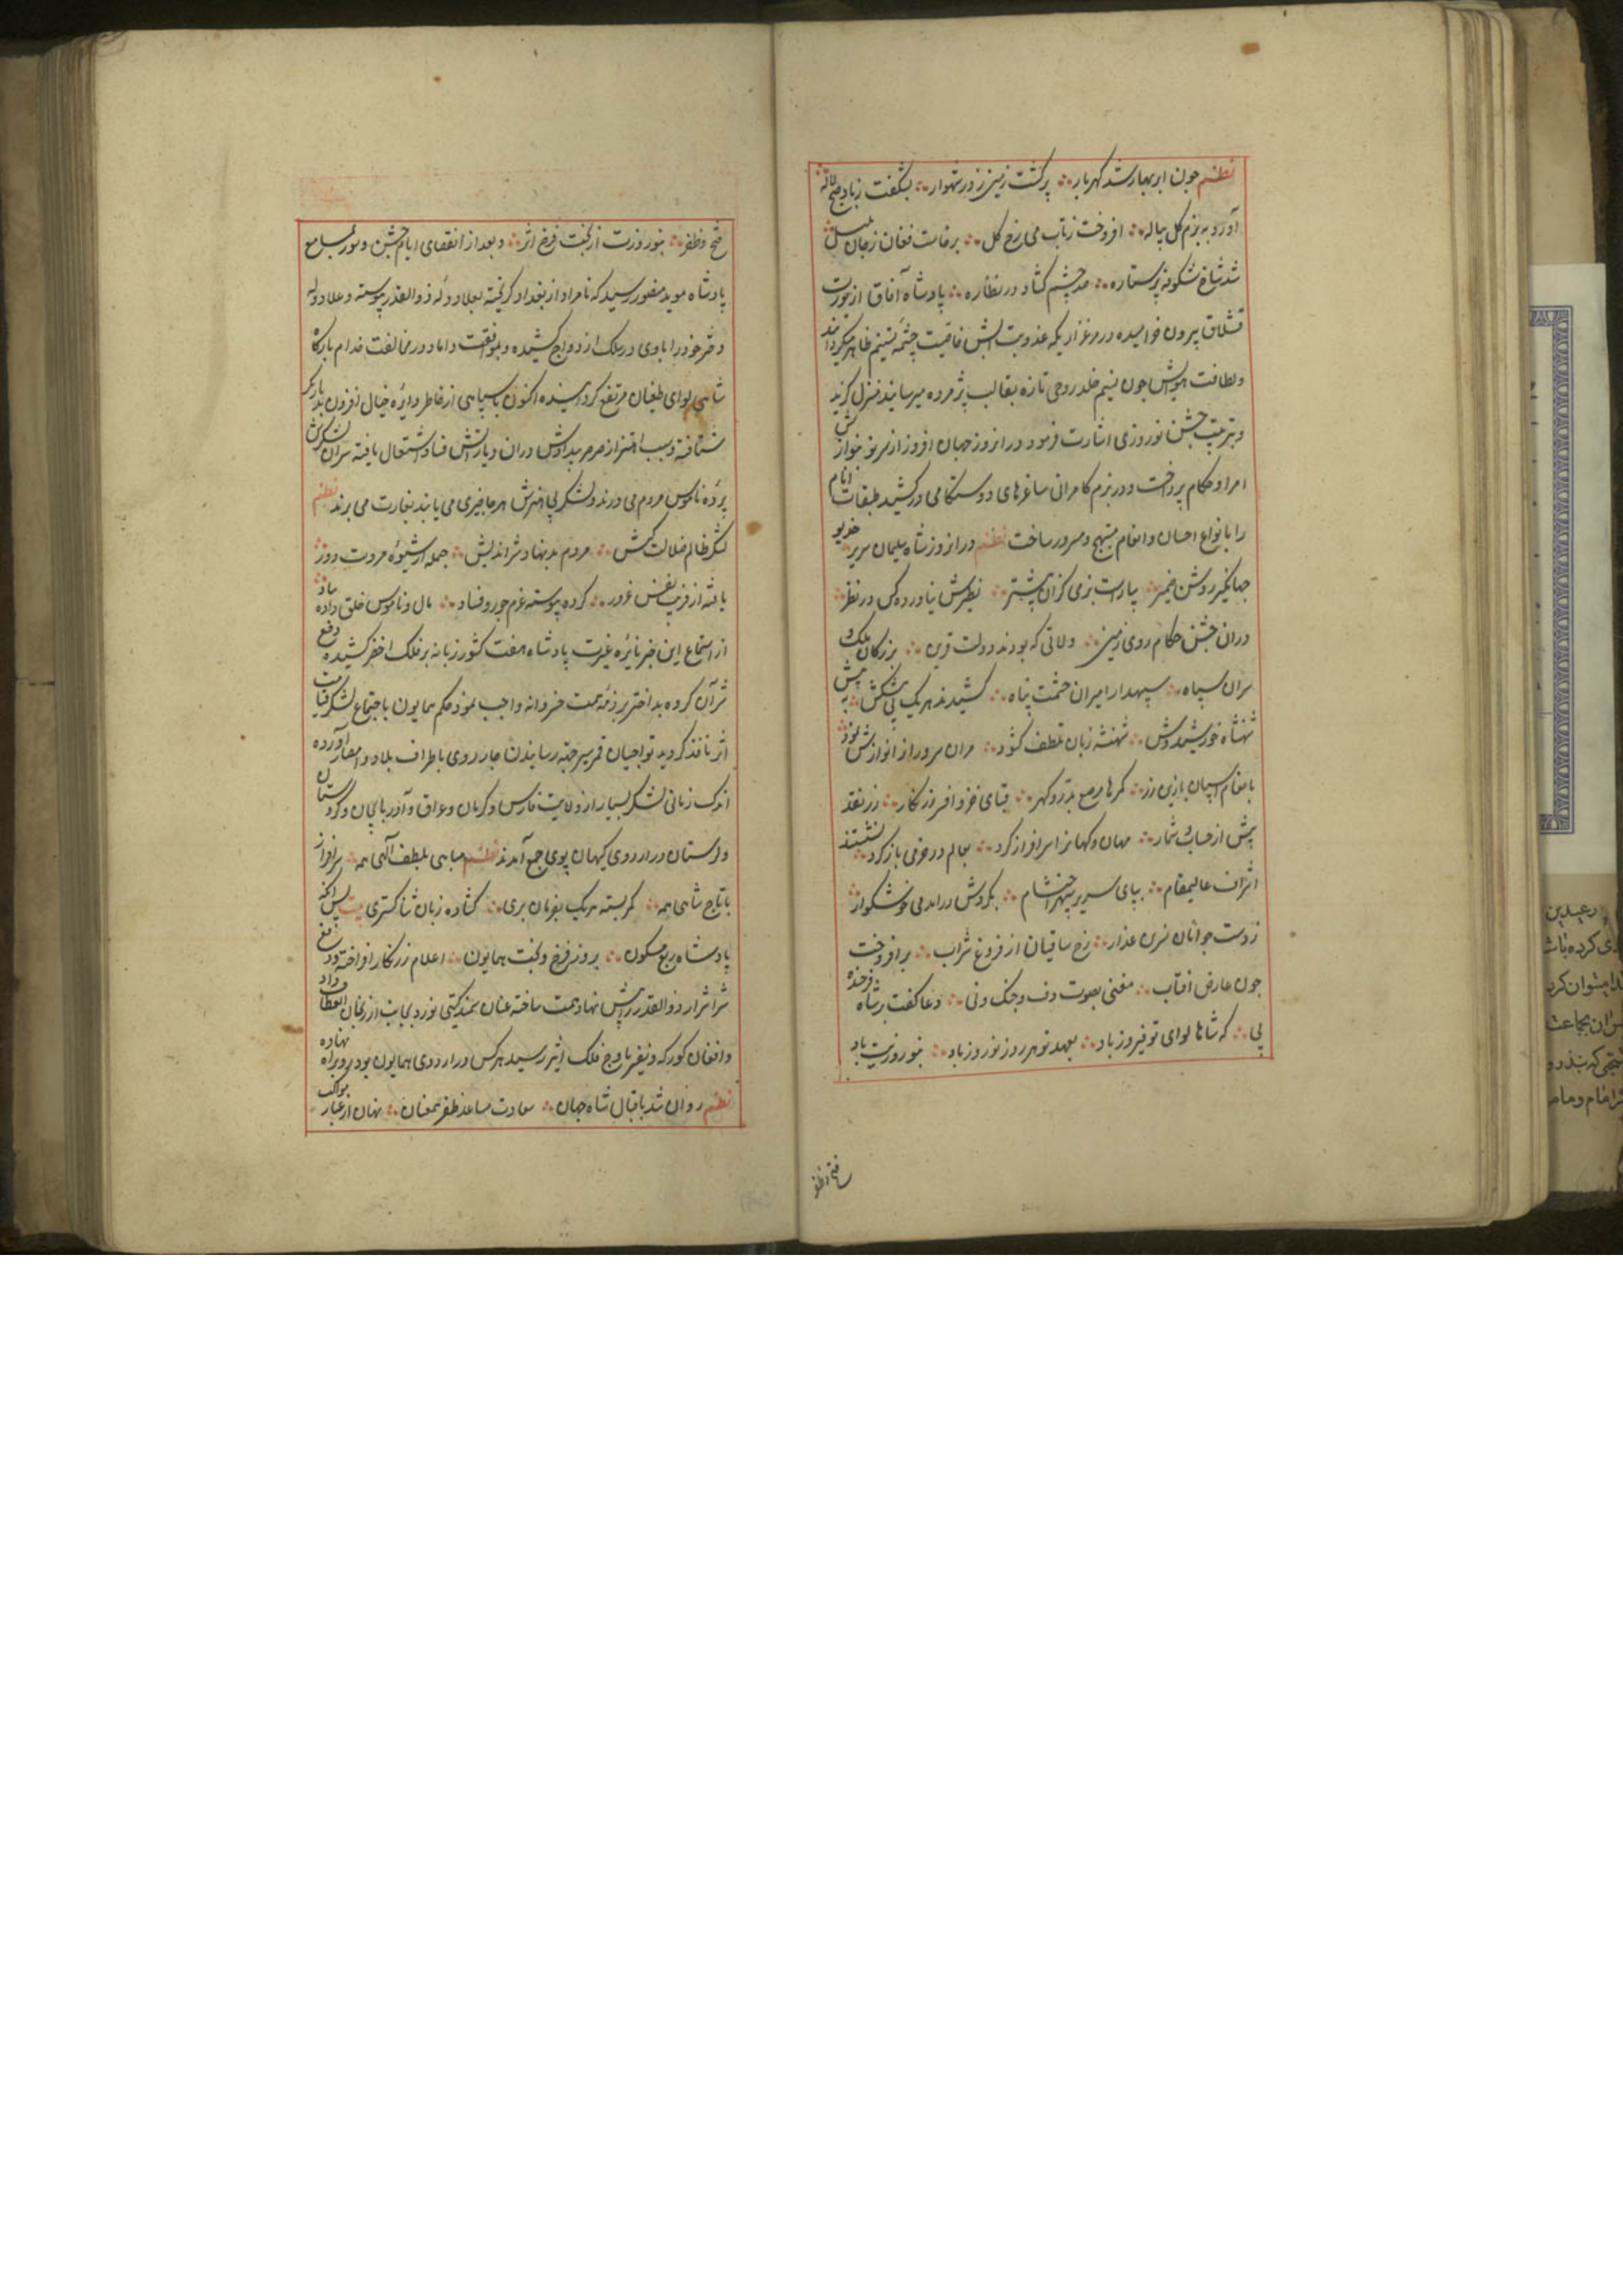 نظم چون ابر بهار شد گهربار ؞ پر گشت زمین ز در شهوار ؞ بشگفت ز باد صبح لاله
آورد به بزم گل پیاله ؞ افروخت ز تاب می رخ گل ؞ برخاست فغان ز جان بلبل
شد شاخ شکوفه پر ستاره ؞ صد چشم گشاد در نظاره ؞ پادشاه آفاق از یورت
قشلاق بیرون خرامیده در مرغزاریکه عذوبت آبش خاصیت چشمه تسنیم ظاهر میگرداند
و لطافت هوایش چون نسیم خلد روحی تازه بقالب پژمرده میرسانید منزل گزید
و بترتیب جشن نوروزی اشارت فرمود در انروز جهان افروز از سر نو بنوازش
امرا و حکام پرداخت و در بزم کامرانی ساغرهای دوستکامی درکشید طبقات انام
را بانواع احسان و انعام مبتهج و مسرور ساخت نظم در انروز شاه سلیمان سریر خدیو
جهانگیر روشن ضمیر ؞ بیاراست بزمی کزان پیشتر ؞ نظیرش نیاورده کس در نظر
دران جشن حکام روی زمین ؞ ولاتی که بودند دولت قرین ؞ بزرگان ملک و
سران سپاه ؞ سپهدار امیران حشمت پناه ؞ کشیدند هر یک پی پیشکش به پیش
شهنشاه خورشیدوش ؞ شهنشه زبان تلطف گشود ؞ سران سرور از نوازش نمود
بانعام اسپان با زین زر ؞ کمرها مرصع بدر و گهر ؞ قبای خز و افسر زرنگار ؞ زر نقد
بیش از حساب و شمار ؞ مهان و کهانرا سرافراز کرد ؞ بعالم در خرمی باز کرد نشستند
اشراف عالیمقام ؞ بپای سریر سپهر احتشام ؞ بگردش درامد می خوشگوار
ز دست جوانان نسرین عذار ؞ رخ ساقیان از فروغ شراب ؞ برافروخت
چون عارض افتاب ؞ مغنی بصوت دف و چنک و نی ؞ دعا گفت بر شاه فرخنده
پی ؞ که شاها لوای تو فیروز باد ؞ بعهد تو هر روز نوروز باد ؞ بنوروزیت باد
فتح و ظفر
فتح و ظفر ؞ بنوروزت از بخت فرخ اثر ؞ و بعد از انقضای ایام جشن و سور بمسامع
پادشاه موید منصور رسید که نامراد از بغداد گریخته بعلاء دوله ذوالقدر پیوسته و علا دوله
دختر خود را با وی در سلک ازدواج کشیده و بموافقت داماد در مخالفت خدام بارگاه
شاهی لوای طغیان مرتفع گردانیده اکنون با سپاهی از قطر دایره خیال افزون بدیاربکر
شتافته و بسبب اهتزاز صرصر بیدادش دران دیار آتش فساد اشتعال یافته سران لشکرش
پرده ناموس مردم می درند و لشکر بی اخترش هر چا چیزی می یابند بغارت می برند نظم
لشکر ظالم ضلالت کیش ؞ مردم بدنهاد شر اندیش ؞ جمله از شیوه مروت دور
یافته از فریب نفس غرور ؞ کرده پیوسته عزم جور و فساد ؞ مال و ناموس خلق داده بباد
از استماع این خبر نایره غیرت پادشاه هفت کشور زبانه بر فلک اخضر کشیده دفع
شر آن گروه بد اختر بر ذمه همت خسروانه واجب نمود حکم همایون باجتماع لشکر قیامت
اثر نافذ گردید تواجیان قمر سیر جهته رسانیدن جار روی باطراف بلاد و امصار آورده
اندک زمانی لشکر بسیار از ولایت فارس و کرمان و عراق و آذربایجان و کردستان
و لرستان در اردوی کیهان پوی جمع آمدند نظم مباهی بلطف الهی همه ؞ سرافراز
با تاج شاهی همه ؞ کمر بسته هر یک بفرمان بری ؞ گشاده زبان ثناگستری بیت پس انکه
پادشاه ربع مسکون ؞ بروز فرخ و بخت همایون ؞ اعلام زرنگار افراخته دفع
شر اشرار ذوالقدر را پیش نهاد همت ساخته عنان سمند گیتی نورد بجانب ارزنجان انعطاف داد
و افغان کورکه و نفیر باوج فلک اثیر رسید هر کس در اردوی همایون بود رو براه نهاده
نظم روان شد باقبال شاه جهان ؞ سعادت مساعد ظفر همعنان ؞ نهان از غبار مواکب